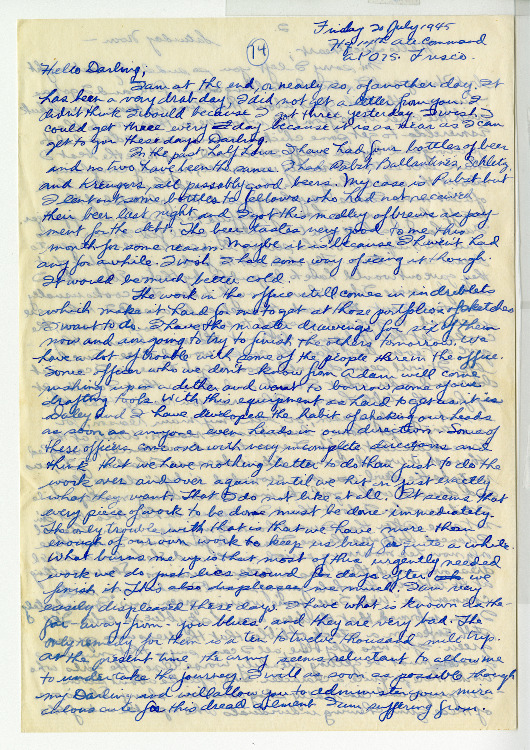 Friday 20 July 1945
74
Hq
Command
A.P.O. 75. Frisco.
Hello Darling;
I am at the end, or nearly so, of another day. It
has been a very drab day, I did not get a letter from you. I
didn't think I would because I got three yesterday. I wish I
could get three every day because it is as near as I can
get to you these days Darling.
In the past half hour I have had four bottles of beer
and no two have been the same. I had Pabst, Ballantines, Schlitz,
and Kreugers, all passably good beers. My case is Pabst but
I lent out some bottles to fellows who had not received
their beer last night and I got this medley of brews as pay
ment for the debt. The beer tastes very good to me this
month for some reason. Maybe it is because I haven't had
any for awhile. I wish I had some way of icing it though.
It would be much better cold.
The work in the office still comes in in driblets
which make it hard for me to get at those portfolios of sketches
I want to do. I have the master drawings for six of them
now and am going to try to finish the others tomorrow. We
have a lot of trouble with some of the people here in the office.
Some officer who we don't know from Adam will come
in a dither and want to borrow some of our
drafting tools. With this equipment as hard to get as it is
Daley and I have developed the habit of shaking our heads
as soon as anyone even heads in our direction. Some of
these officers come over with very incomplete directions and
think that we have nothing better to do than just to do the
work over and over again until we hit on just exactly
what they want. That I do not like at all. It seems that
every piece of work to be done must be done immediately.
The only trouble with that is that we have more than
enough of our own work to keep us busy for quite a while.
What burns me up is that most of this urgently needed
work we do just lies around for days after we
finish it. This also displeases me much. I am very
easily displeased these days. I have what is known as the
far-away-from-you blues and they are very bad. The
only remedy for them is a ten to twelve thousand mile trip.
At the present time the army seems reluctant to allow me
to undertake the journey. I will as soon as possible though
my Darling and will allow you to administer your mira-
culous cure for this dread ailment I am suffering from.